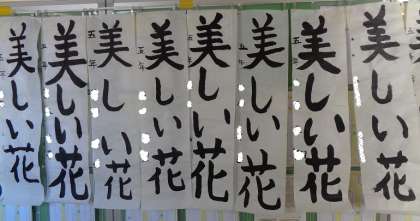 美しい花
五年
美しい花
五年
美しい花
五年
美しい花
五年
美しい花
五年
美しい花
五年
美しい花
五年
美しい花